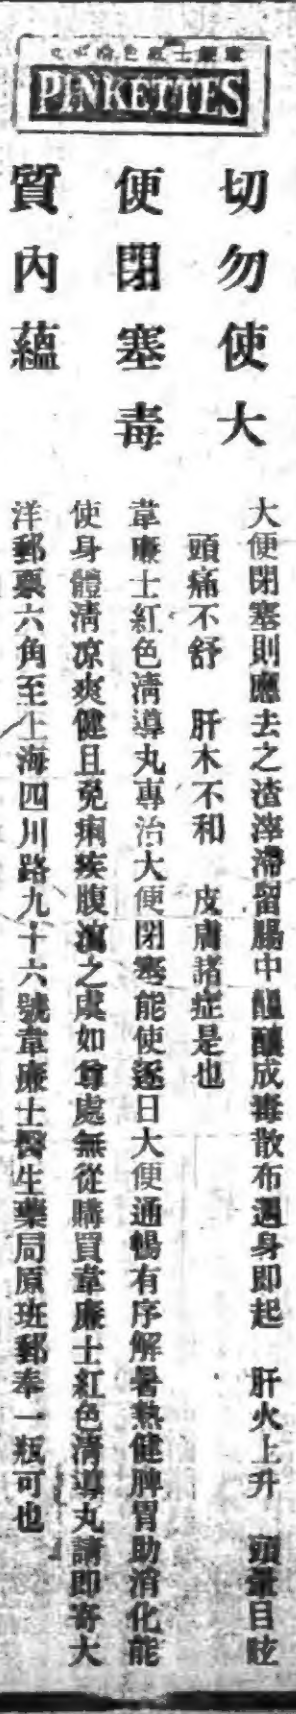 韋廉士紅色
PINKETTES
切勿使大
便閉塞毒
質內蘊
大便閉塞則應去之渣滓滯留腸中醞釀成毒散布遍身即起　肝火上升　頭暈目眩
頭痛不舒　肝木不和　皮膚諸症是也
韋廉士紅色清導丸專治大便閉塞能使逐日大便通暢有序解暑熱健脾胃助消化能
使身體清凉爽健且免痢疾腹瀉之虞如尊處無從購買韋廉士紅色清導丸請即寄大
洋郵票六角至上海四川路九十六號韋廉士醫生藥局原班郵奉一瓶可也